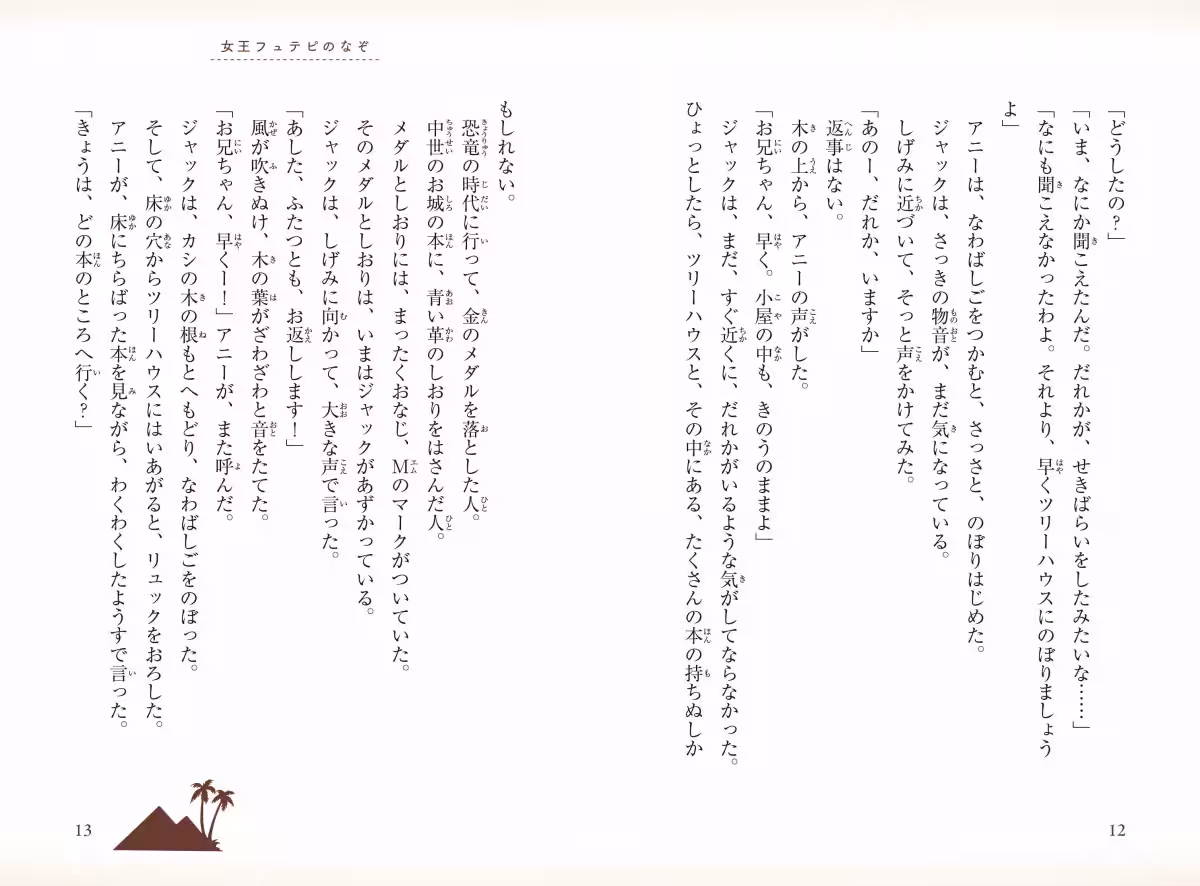 「どうしたの?」
「いま、なにか聞こえたんだ。だれかが、せきばらいをしたみたいな……」
「なにも聞こえなかったわよ。それより、早くツリーハウスにのぼりましょう
よ」
アニーは、なわばしごをつかむと、さっさと、のぼりはじめた。
ジャックは、さっきの物音が、まだ気になっている。
しげみに近づいて、そっと声をかけてみた。
「あのー、だれか、いますか」
返事はない。
木の上から、アニーの声がした。
「お兄ちゃん、早く。小屋の中も、きのうのままよ」
ジャックは、まだ、すぐ近くに、だれかがいるような気がしてならなかった。
ひょっとしたら、ツリーハウスと、その中にある、たくさんの本の持ちぬしか
12
女王フュテピのなぞ
もしれない。
恐竜の時代に行って、金のメダルを落とした人。
中世のお城の本に、青い革のしおりをはさんだ人。
メダルとしおりには、まったくおなじ、Mのマークがついていた。
そのメダルとしおりは、いまはジャックがあずかっている。
ジャックは、しげみに向かって、大きな声で言った。
「あした、ふたつとも、お返しします!」
風が吹きぬけ、木の葉がざわざわと音をたてた。
「お兄ちゃん、早くー!」アニーが、また呼んだ。
ジャックは、カシの木の根もとへもどり、なわばしごをのぼった。
そして、床の穴からツリーハウスにはいあがると、リュックをおろした。
アニーが、床にちらばった本を見ながら、わくわくしたようすで言った。
「きょうは、どの本のところへ行く?」
13